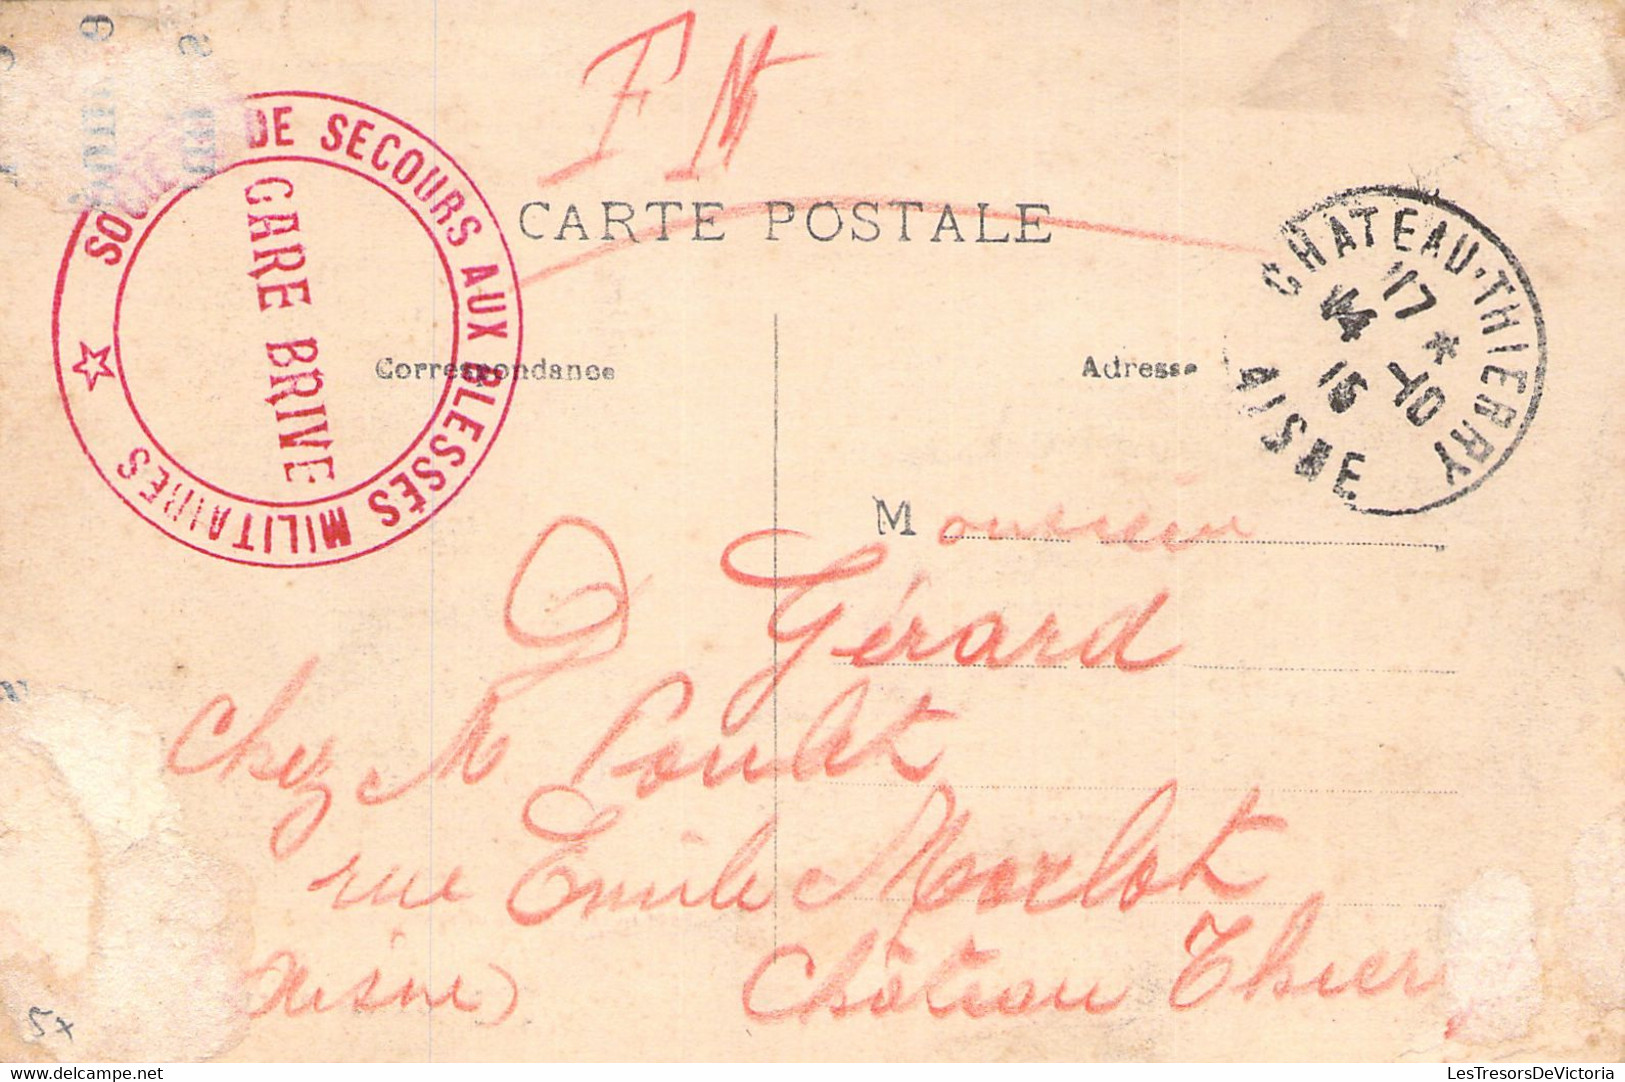 F M
SOCIÉTÉ DE SECOURS AUX BLESSÉS MILITAIRES
GARE BRIVE
CARTE POSTALE
CHATEAU-THIERRY
17 *
14 -10
15
AISNE
Correspondance
Adresse
Monsieur
Gérard
chez M Poulet
rue Emile Morlot
Château Thierry
(Aisne)
5x
LesTresorsDeVictoria